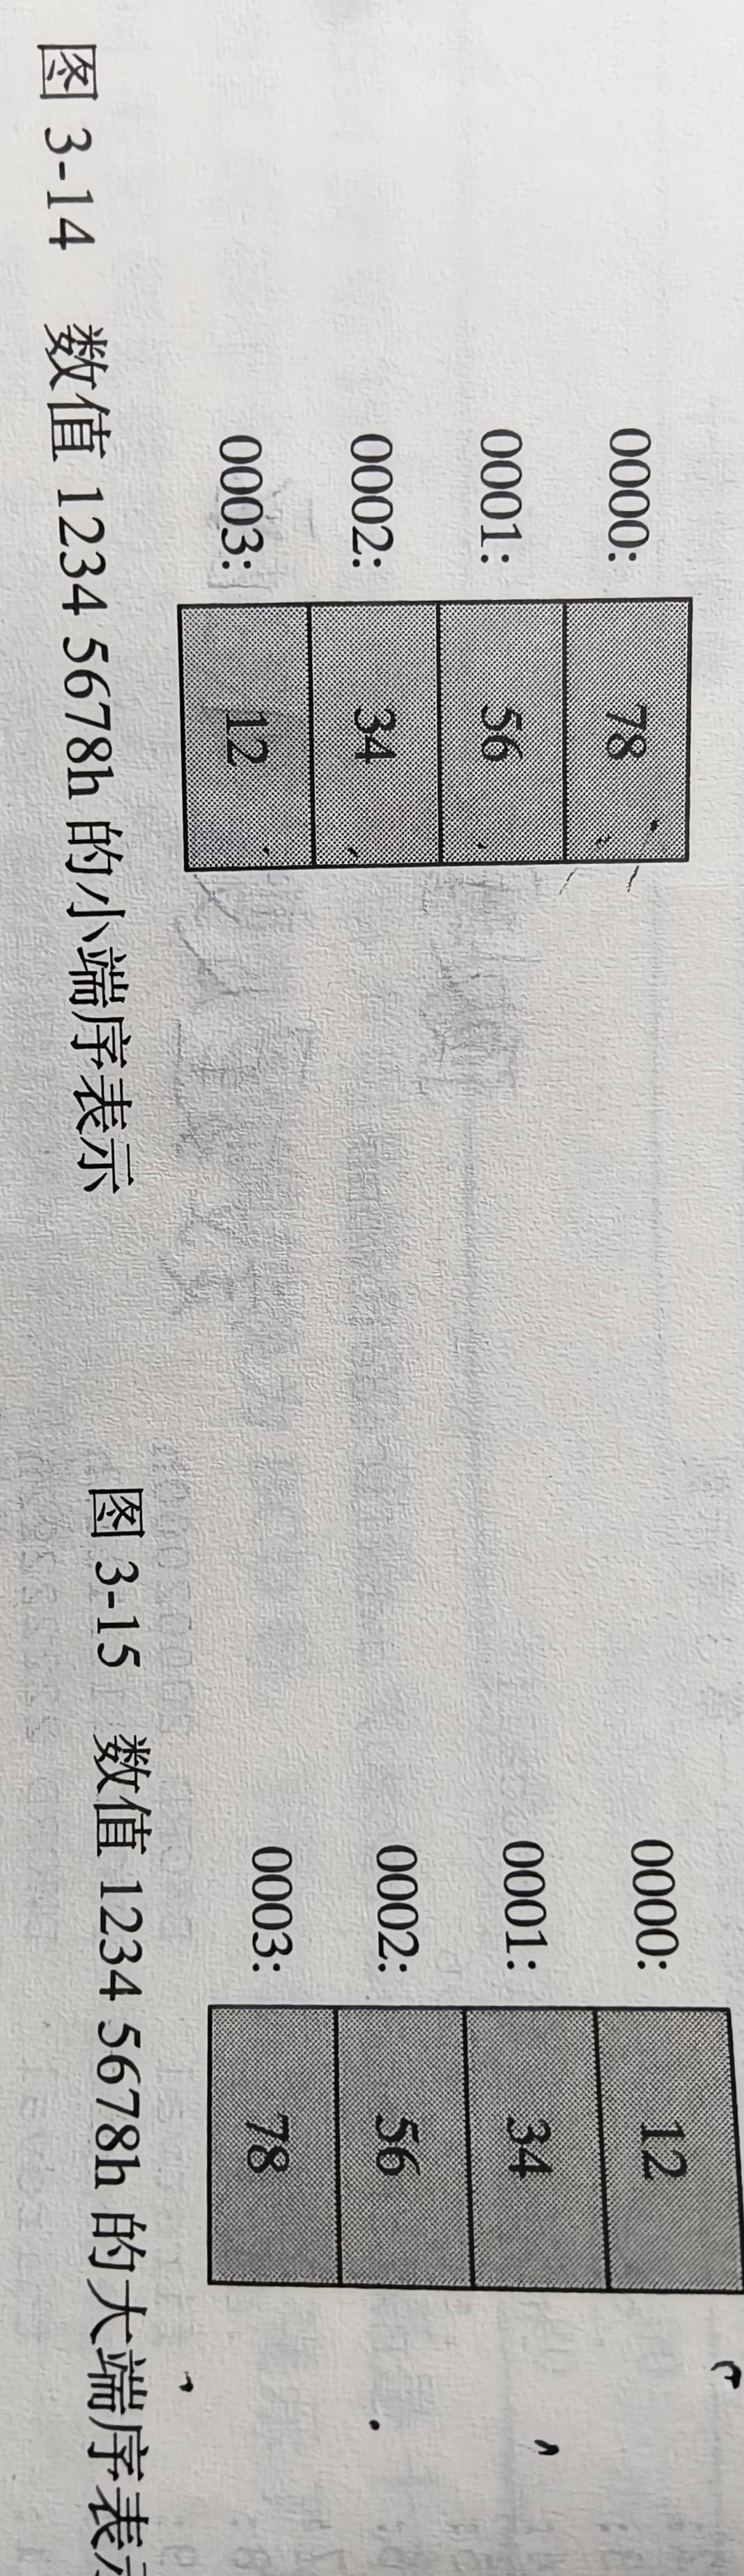 0000: 78
0001: 56
0002: 34
0003: 12
图 3-14 数值 1234 5678h 的小端序表示
0000: 12
0001: 34
0002: 56
0003: 78
图 3-15 数值 1234 5678h 的大端序表